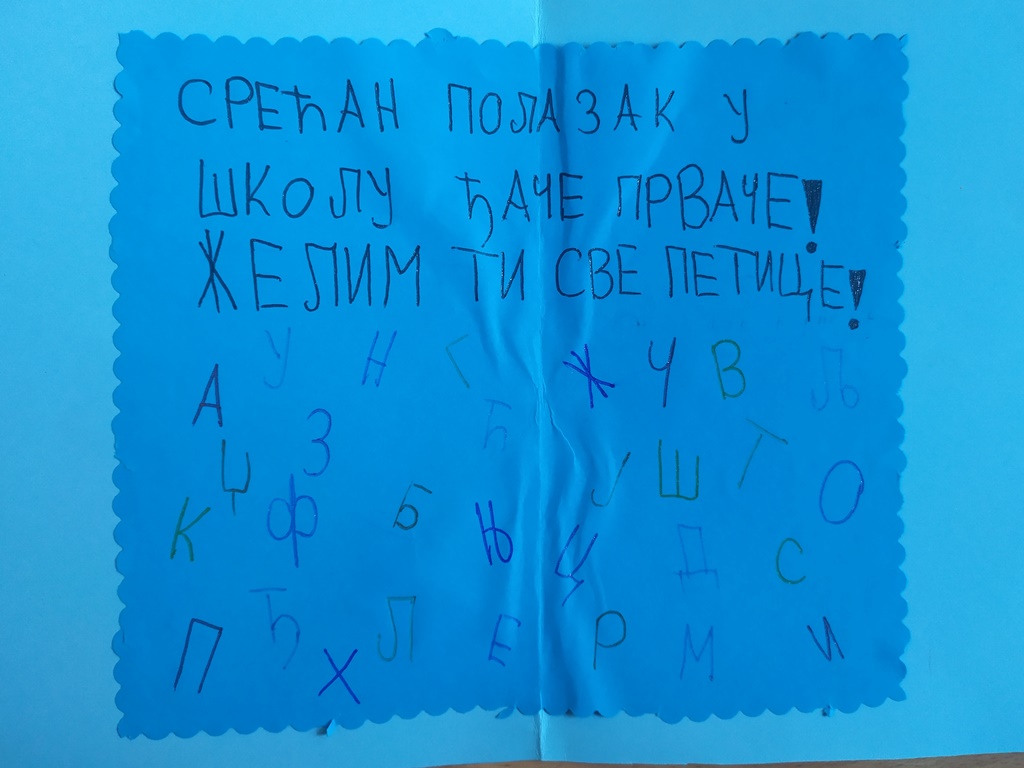 СРЕЋАН ПОЛАЗАК У
ШКОЛУ ЂАЧЕ ПРВАЧЕ!
ЖЕЛИМ ТИ СВЕ ПЕТИЦЕ!
У Н Г Ж Ч В Љ
А З Ћ Т
Џ Ј Ш О
К Ф Б Њ Ц Д С
Ђ Л Е Р М И
П Х